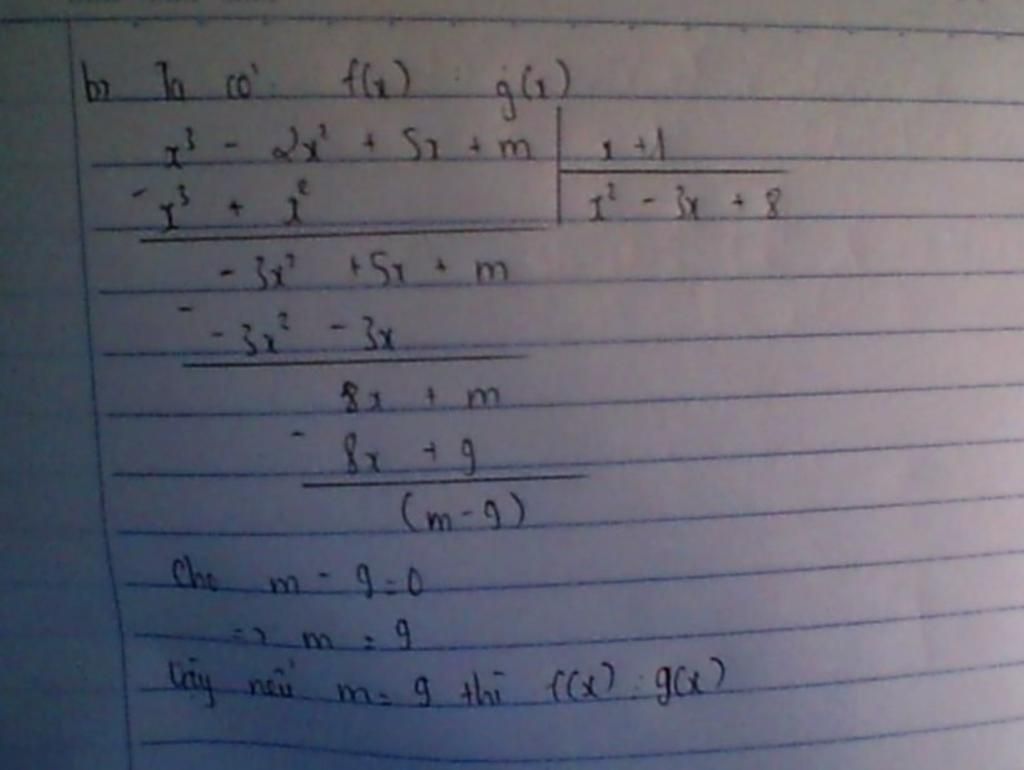 b, Ta có: f(x) : g(x)
x³ - 2x² + 5x + m | x + 1
- x³ + x² | x² - 3x + 8
- 3x² + 5x + m
- - 3x² - 3x
8x + m
- 8x + 9
(m - 9)
Cho m - 9 = 0
=> m = 9
Vậy nếu m = 9 thì f(x) : g(x)